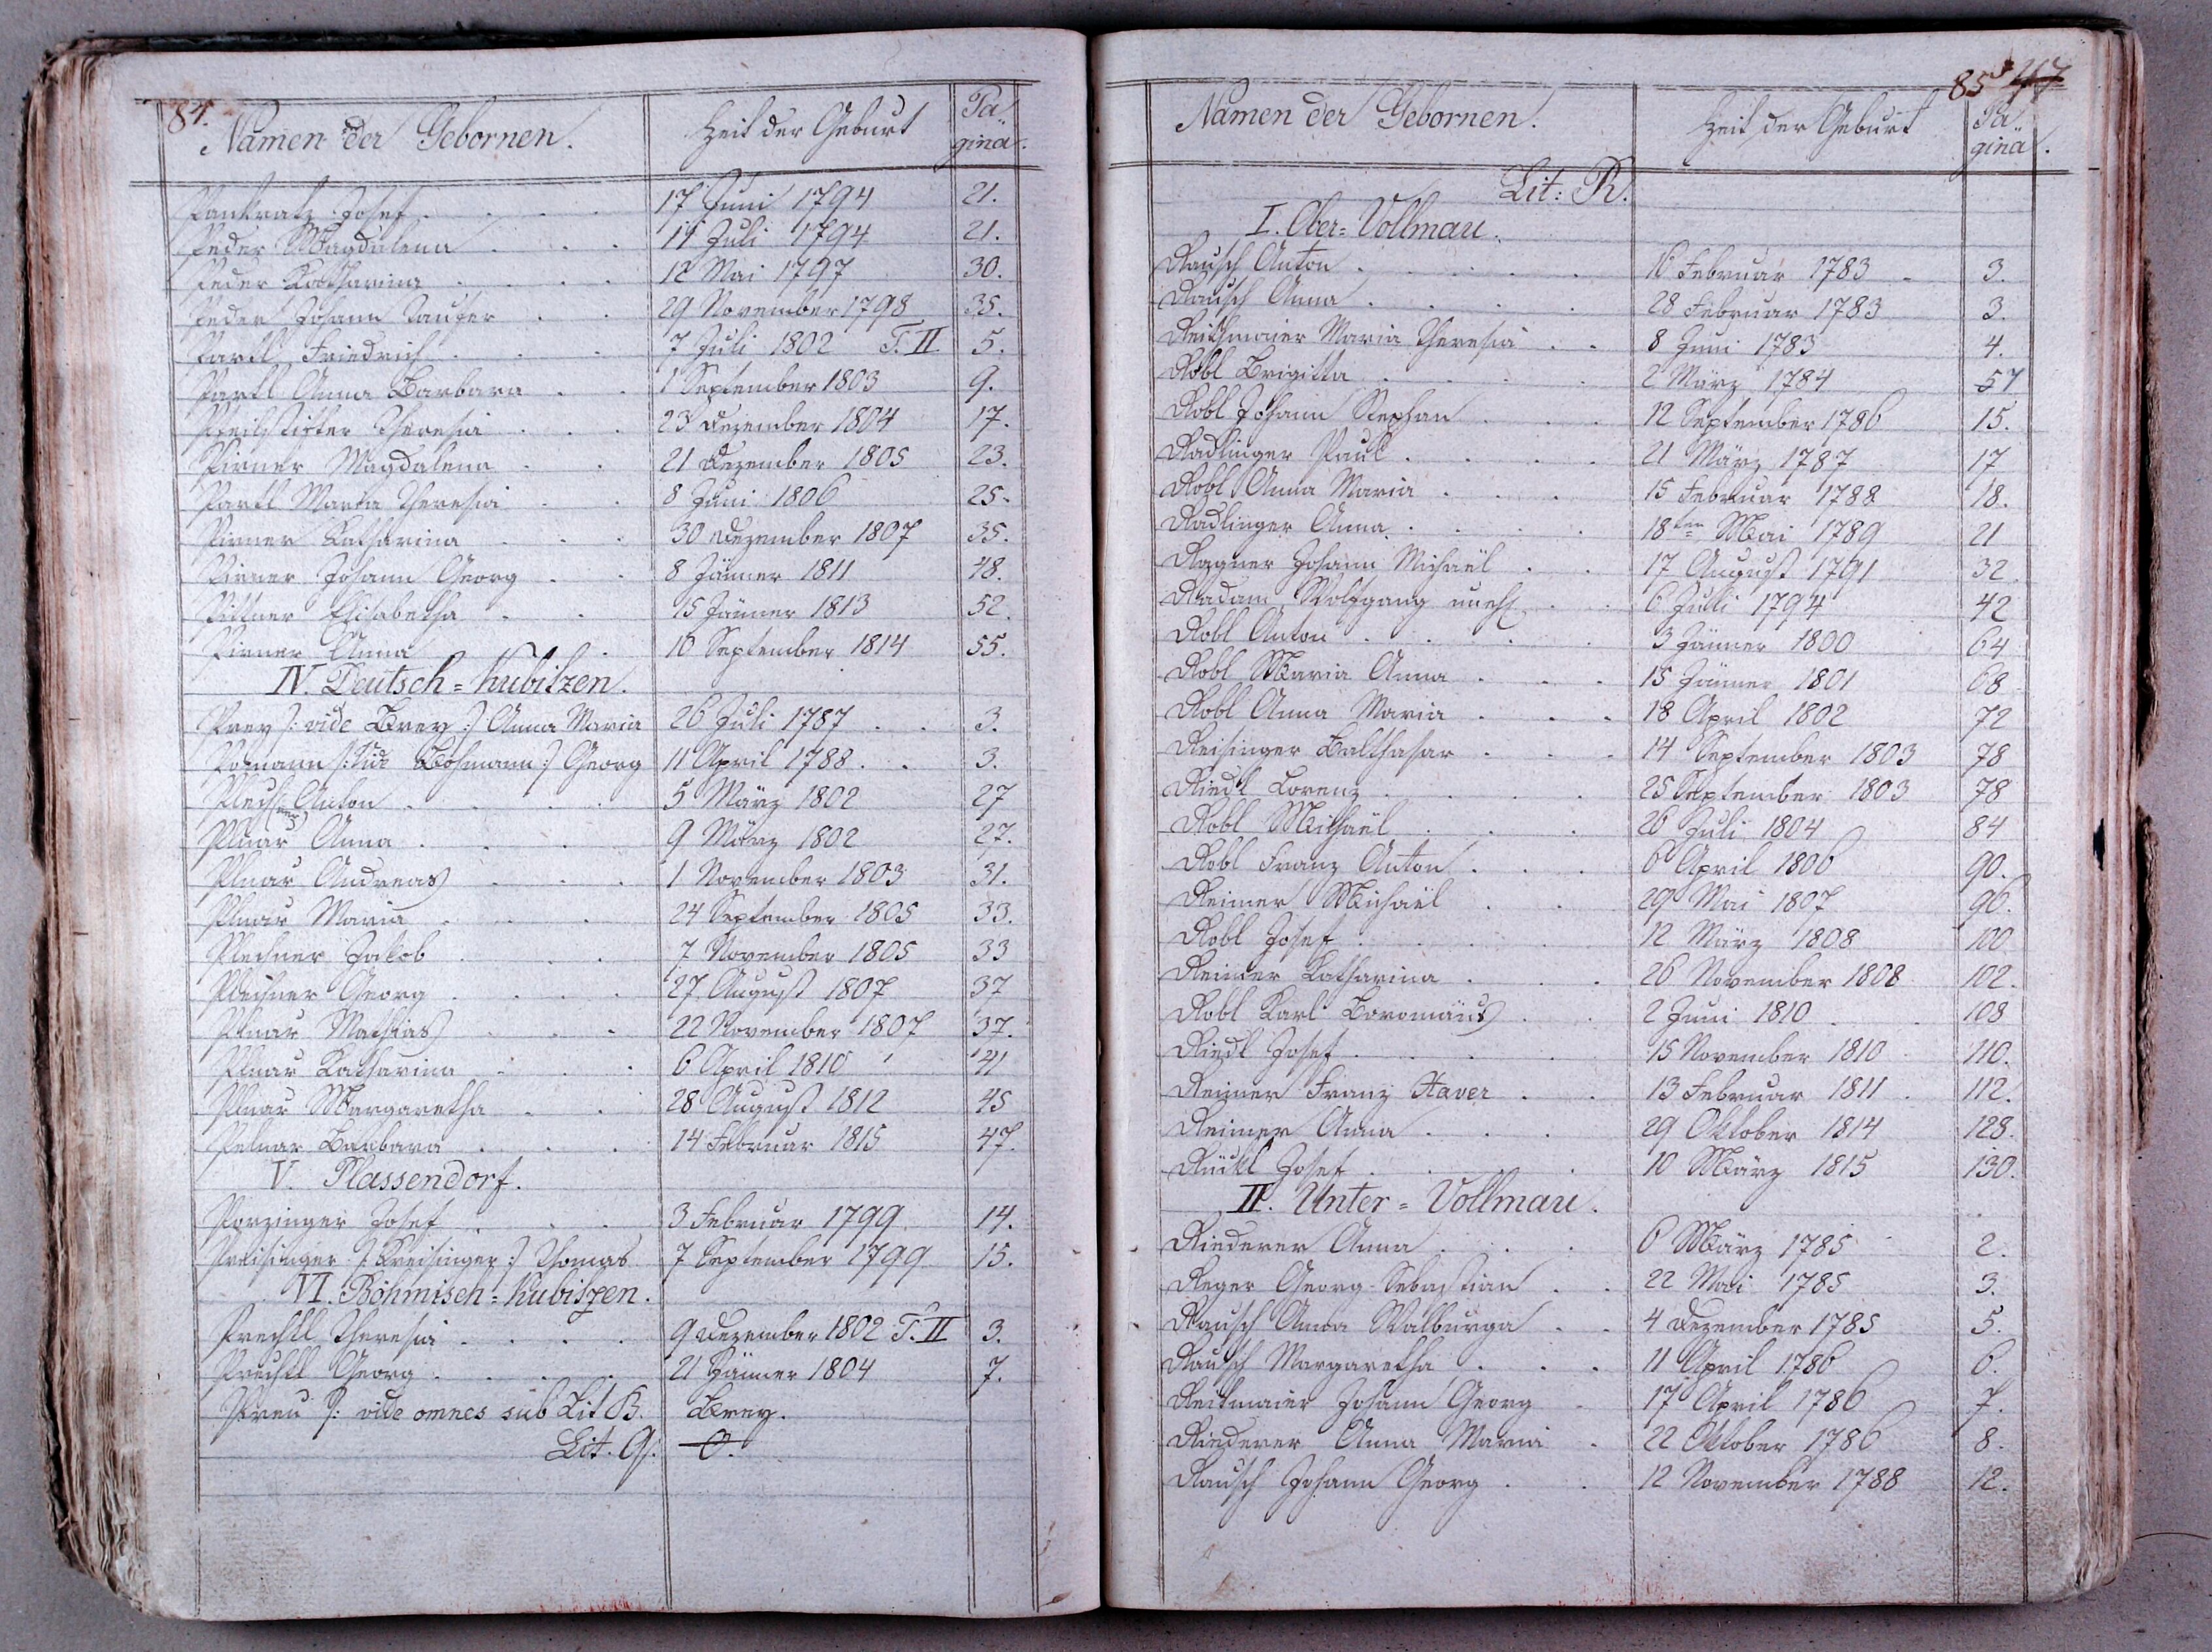 84.
Namen der Gebornen. Zeit der Geburt Pagina.
Pankratz Josef 17 Juni 1794 21.
Peder Magdalena 11 Juli 1794 21.
Peder Katharina 12 Mai 1797 30.
Peder Johann 29 November 1798 35.
Partl Friedrich 7 Juli 1802 T. II 5.
Partl Anna Barbara 1 September 1803 9.
Theresia 23 Dezember 1804 17.
Pirner Magdalena 21 Dezember 1805 23.
Partl Maria Theresia 8 Juni 1806 25.
Pirner Katharina 30 Dezember 1807 35.
Pirner Johann Georg 8 Jänner 1811 48.
Pittner Elisabetha 15 Jänner 1813 52.
Pirner Anna 10 September 1814 55.
IV. Deutsch=Kubitzen.
Prey /: vide Brey :/ Anna Maria 26 Juli 1787 3.
Posmann /: vide Bosmann :/ Georg 11 April 1788 3.
Anton 5 März 1802 27
Plnar Anna 9 März 1802 27.
Plnar Andreas 1 November 1803 31.
Plnar Maria 24 September 1805 33.
Plechner Jakob 7 November 1805 33
Plechner Georg 27 August 1807 37
Plnar Mathias 22 November 1807 37.
Plnar Katharina 6 April 1810 41
Plnar Margaretha 28 August 1812 45
Pelnar Barbara 14 Februar 1815 47.
V. Plassendorf.
Porzinger Josef 3 Februar 1799 14.
Preisinger /: Breisinger :/ Thomas 7 September 1799 15.
VI. Böhmisch=Kubitzen.
Prechtl Theresia 9 Dezember 1802 T. II 3.
Prechtl Georg 21 Jänner 1804 7.
Preu /: vide omnes sub Lit B. Brey.
Lit. Q. O.
85
47
Namen der Gebornen. Zeit der Geburt Pagina.
Lit: R.
I. Ober=Vollmau.
Rausch Anton 16 Februar 1783 3.
Rausch Anna 28 Februar 1783 3.
Reithmaier Maria Theresia 8 Juni 1783 4.
Robl Brigitta 2 März 1784 57
Robl Johann Stephan 12 September 1786 15.
Radlinger Paul 21 März 1787 17
Robl Anna Maria 15 Februar 1788 18.
Radlinger Anna 18ten Mai 1789 21
Ragner Johann Michaël 17 August 1791 32
Radam Wolfgang unehl. 6 Juli 1794 42
Robl Anton 3 Jänner 1800 64
Robl Maria Anna 15 Jänner 1801 68
Robl Anna Maria 18 April 1802 72
Reisinger Balthasar 14 September 1803 78
Riedl Lorenz 25 September 1803 78
Robl Michaël 26 Juli 1804 84
Robl Franz Anton 6 April 1806 90.
Reimer Michaël 29 Mai 1807 96.
Robl Josef 12 März 1808 100
Reimer Katharina 26 November 1808 102.
Robl Karl Boromäus 2 Juni 1810 108
Riedl Josef 15 November 1810 110.
Reimer Franz Xaver 13 Februar 1811 112.
Reimer Anna 29 Oktober 1814 128.
Rückl Josef 10 März 1815 130.
II. Unter=Vollmau.
Riederer Anna 6 März 1785 2.
Reger Georg Sebastian 22 Mai 1785 3.
Rausch Anna Walburga 4 Dezember 1785 5.
Rausch Margaretha 11 April 1786 6.
Reitmaier Johann Georg 17 April 1786 7.
Riederer Anna Maria 22 Oktober 1786 8.
Rausch Johann Georg 12 November 1788 12.